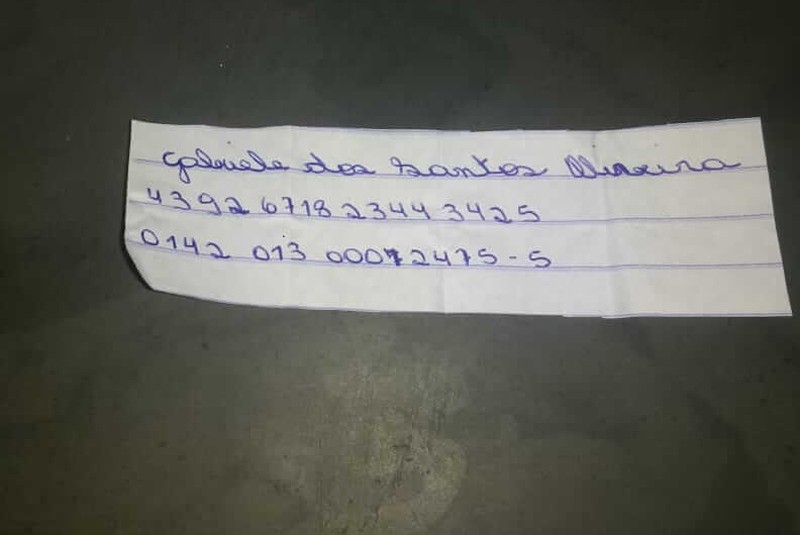 Gabriele dos Santos Oliveira
4392 6718 2344 3425
0142 013 00072475-5